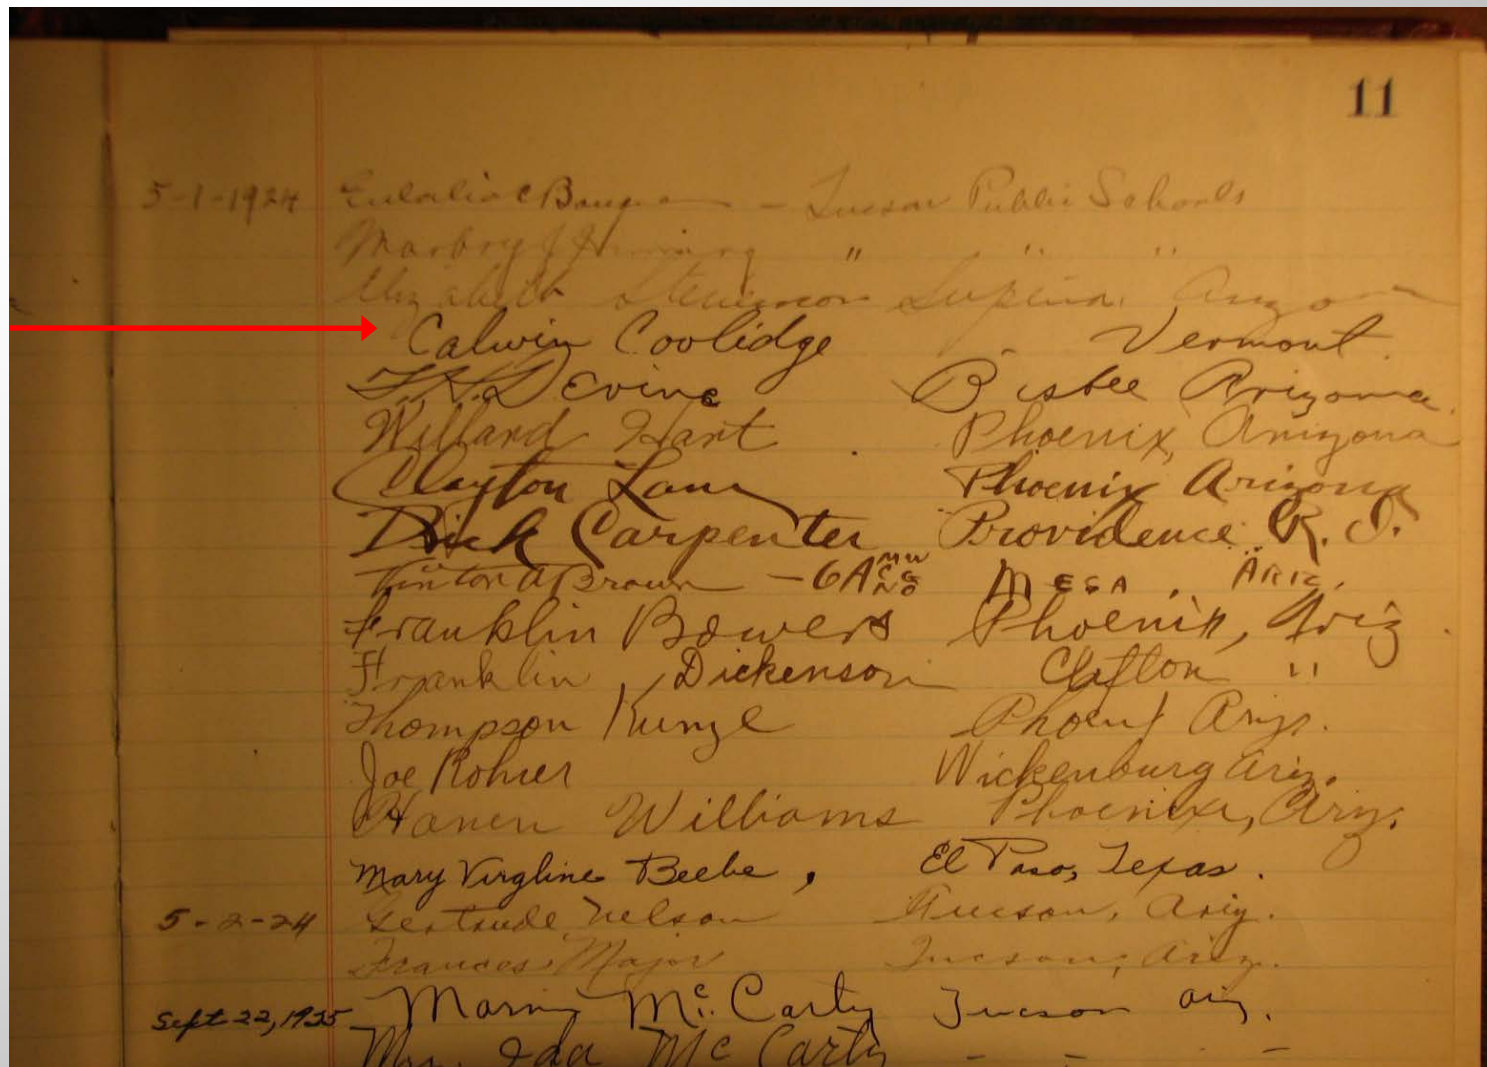 11
5-1-1924 Eulalia C Bourne - Tucson Public Schools
" " "
Elizabeth Stevenson Superior, Arizona
Calwin Coolidge Vermont.
Devine Bisbee Arizona.
Willard Hart Phoenix, Arizona
Clayton Lane Phoenix Arizona
Dick Carpenter Providence R. I.
Vinton A Brown - 6A MESA, ARIZ.
Franklin Bowers Phoenix, Ariz.
Franklin Dickenson Clifton "
Thompson Kunze Ariz.
Joe Rohrer Wickenburg Ariz.
Williams Phoenix, Ariz.
Mary Virgline Beebe, El Paso, Texas.
5-2-24 Gertrude Nelson Tucson, Ariz.
Frances Major Tucson, Ariz.
Sept 22, 1925 McCarty Tucson Ariz.
Mrs. Ida McCarty - - -